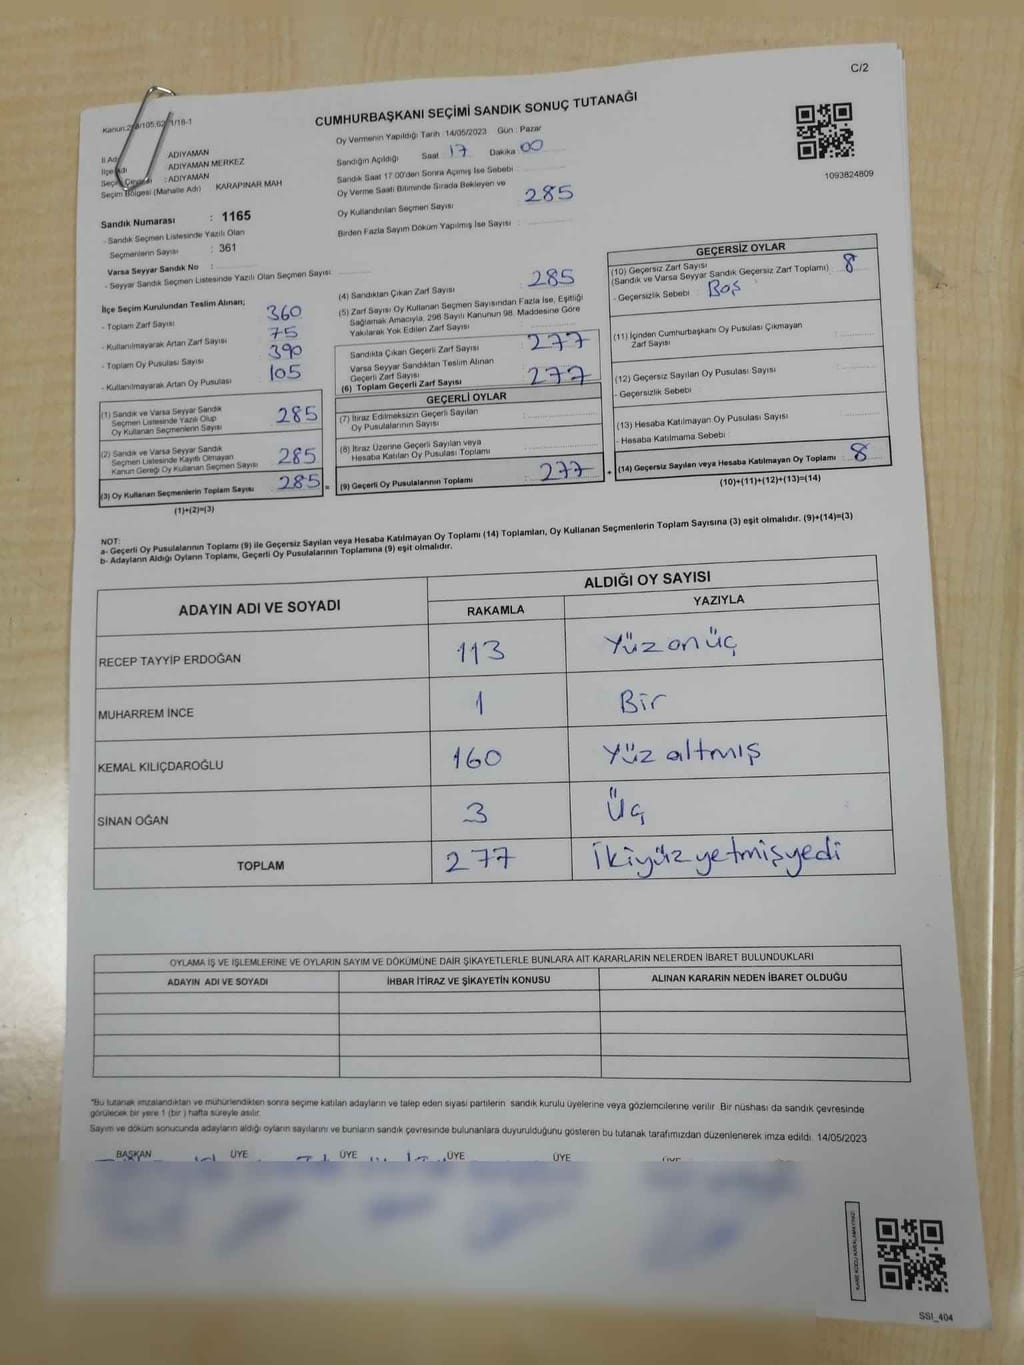 C/2
CUMHURBAŞKANI SEÇİMİ SANDIK SONUÇ TUTANAĞI
Oy Vermenin Yapıldığı Tarih : 14/05/2023 Gün : Pazar
1093824809
İl Adı ADIYAMAN
İlçe Adı ADIYAMAN MERKEZ
Seçim Çevresi : ADIYAMAN
Seçim Bölgesi (Mahalle Adı) KARAPINAR MAH
Sandık Numarası : 1165
- Sandık Seçmen Listesinde Yazılı Olan
Seçmenlerin Sayısı : 361
Varsa Seyyar Sandık No :
- Seyyar Sandık Seçmen Listesinde Yazılı Olan Seçmen Sayısı
Sandığın Açıldığı Saat 17 Dakika 00
Sandık Saat 17:00'den Sonra Açımış İse Sebebi
Oy Verme Saati Bitiminde Sırada Bekleyen ve
Oy Kullandırılan Seçmen Sayısı 285
Birden Fazla Sayım Döküm Yapılmış İse Sayısı
İlçe Seçim Kurulundan Teslim Alınan;
- Toplam Zarf Sayısı 360
- Kullanılmayarak Artan Zarf Sayısı 75
- Toplam Oy Pusulası Sayısı 390
- Kullanılmayarak Artan Oy Pusulası 105
(1) Sandık ve Varsa Seyyar Sandık
Seçmen Listesinde Yazılı Olup
Oy Kullanan Seçmenlerin Sayısı 285
(2) Sandık ve Varsa Seyyar Sandık
Seçmen Listesinde Kayıtlı Olmayan
Kanun Gereği Oy Kullanan Seçmen Sayısı 285
(3) Oy Kullanan Seçmenlerin Toplam Sayısı 285 =
(1)+(2)=(3)
(4) Sandıktan Çıkan Zarf Sayısı 285
(5) Zarf Sayısı Oy Kullanan Seçmen Sayısından Fazla İse, Eşitliği
Sağlamak Amacıyla, 298 Sayılı Kanunun 98. Maddesine Göre
Yakılarak Yok Edilen Zarf Sayısı
Sandıkta Çıkan Geçerli Zarf Sayısı 277
Varsa Seyyar Sandıktan Teslim Alınan
Geçerli Zarf Sayısı
(6) Toplam Geçerli Zarf Sayısı 277
GEÇERLİ OYLAR
(7) İtiraz Edilmeksizin Geçerli Sayılan
Oy Pusulalarının Sayısı
(8) İtiraz Üzerine Geçerli Sayılan veya
Hesaba Katılan Oy Pusulası Toplamı
(9) Geçerli Oy Pusulalarının Toplamı 277 +
GEÇERSİZ OYLAR
(10) Geçersiz Zarf Sayısı
(Sandık ve Varsa Seyyar Sandık Geçersiz Zarf Toplamı) 8
- Geçersizlik Sebebi : Boş
(11) İçinden Cumhurbaşkanı Oy Pusulası Çıkmayan
Zarf Sayısı
(12) Geçersiz Sayılan Oy Pusulası Sayısı
- Geçersizlik Sebebi
(13) Hesaba Katılmayan Oy Pusulası Sayısı
- Hesaba Katılmama Sebebi
(14) Geçersiz Sayılan veya Hesaba Katılmayan Oy Toplamı 8
(10)+(11)+(12)+(13)=(14)
NOT:
a- Geçerli Oy Pusulalarının Toplamı (9) ile Geçersiz Sayılan veya Hesaba Katılmayan Oy Toplamı (14) Toplamları, Oy Kullanan Seçmenlerin Toplam Sayısına (3) eşit olmalıdır. (9)+(14)=(3)
b- Adayların Aldığı Oyların Toplamı, Geçerli Oy Pusulalarının Toplamına (9) eşit olmalıdır.
ADAYIN ADI VE SOYADI ALDIĞI OY SAYISI
RAKAMLA YAZIYLA
RECEP TAYYİP ERDOĞAN 113 Yüz on üç
MUHARREM İNCE 1 Bir
KEMAL KILIÇDAROĞLU 160 Yüz altmış
SİNAN OĞAN 3 Üç
TOPLAM 277 İkiyüzyetmişyedi
OYLAMA İŞ VE İŞLEMLERİNE VE OYLARIN SAYIM VE DÖKÜMÜNE DAİR ŞİKAYETLERLE BUNLARA AİT KARARLARIN NELERDEN İBARET BULUNDUKLARI
ADAYIN ADI VE SOYADI İHBAR İTİRAZ VE ŞİKAYETİN KONUSU ALINAN KARARIN NEDEN İBARET OLDUĞU
*Bu tutanak imzalandıktan ve mühürlendikten sonra seçime katılan adayların ve talep eden siyasi partilerin sandık kurulu üyelerine veya gözlemcilerine verilir. Bir nüshası da sandık çevresinde
görülecek bir yere 1 (bir) hafta süreyle asılır.
Sayım ve döküm sonucunda adayların aldığı oyların sayılarını ve bunların sandık çevresinde bulunanlara duyurulduğunu gösteren bu tutanak tarafımızdan düzenlenerek imza edildi. 14/05/2023
BAŞKAN ÜYE ÜYE ÜYE ÜYE
KARE KODU KARALAMAYINIZ
SSI_404